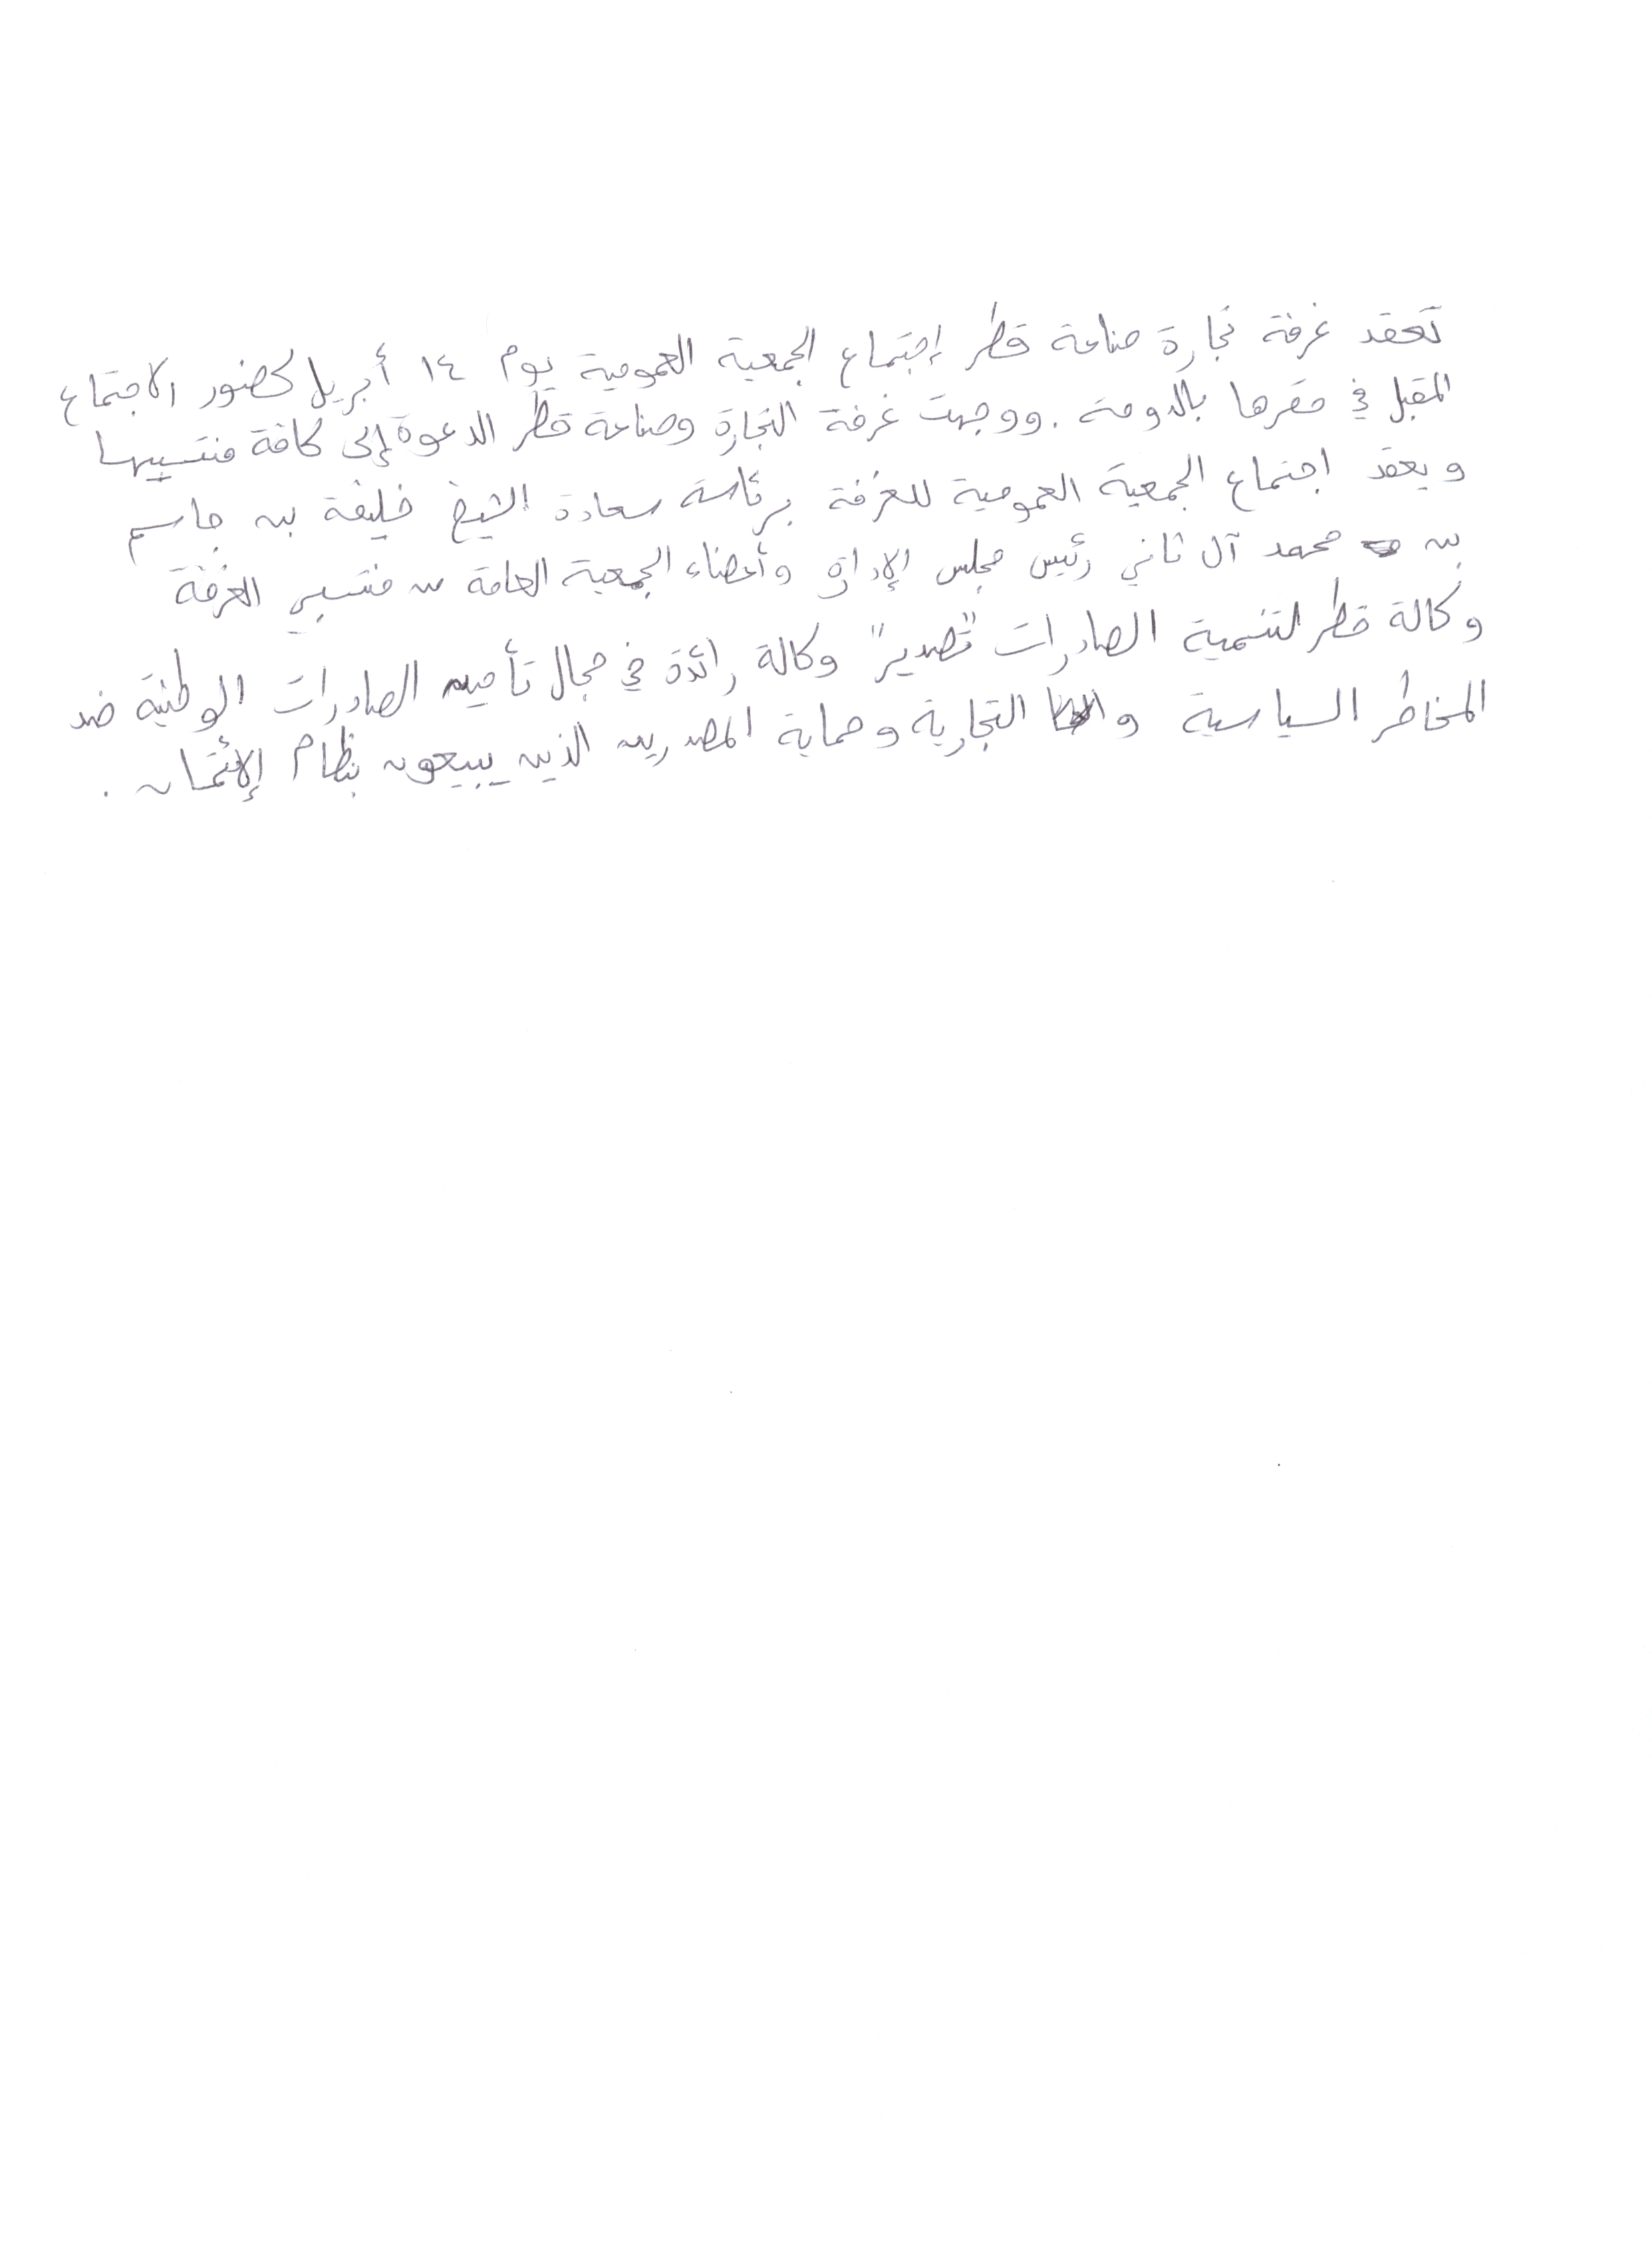 تعقد غرفة تجارة صناعة قطر إجتماع الجمعية العمومية يوم ١٤ أبريل لحضور الاجتماع
المقبل في مقرها بالدوحة . ووجهت غرفة التجارة وصناعة قطر الدعوة إلى كافة منتسبيها
ويعقد اجتماع الجمعية العمومية للغرفة برئاسة سعادة الشيخ خليفة بن جاسم
بن محمد آل ثاني رئيس مجلس الإدارة وأعضاء الجمعية العامة من منتسبي الغرفة
وكالة قطر لتنمية الصادرات "تصدير" وكالة رائدة في مجال تأمين الصادرات الوطنية ضد
المخاطر السياسية و التجارية وحماية المصدرين الذين يبيعون بنظام الإئتمان .